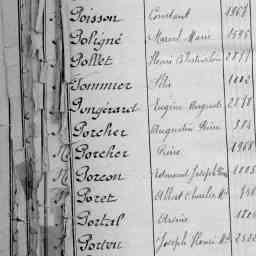 Poisson Constant 1867
Poligné Marcel Marie 1595
Pollet Henri 2877
Pommier Félix 1002
Pongérard Eugène Auguste 2878
Porcher Augustin Pierre 384
N Porcher Pierre 1968
N Porcon Edmond Joseph 1005
N Poret Albert Charles
Portal Arsène
Porteu Joseph Henri